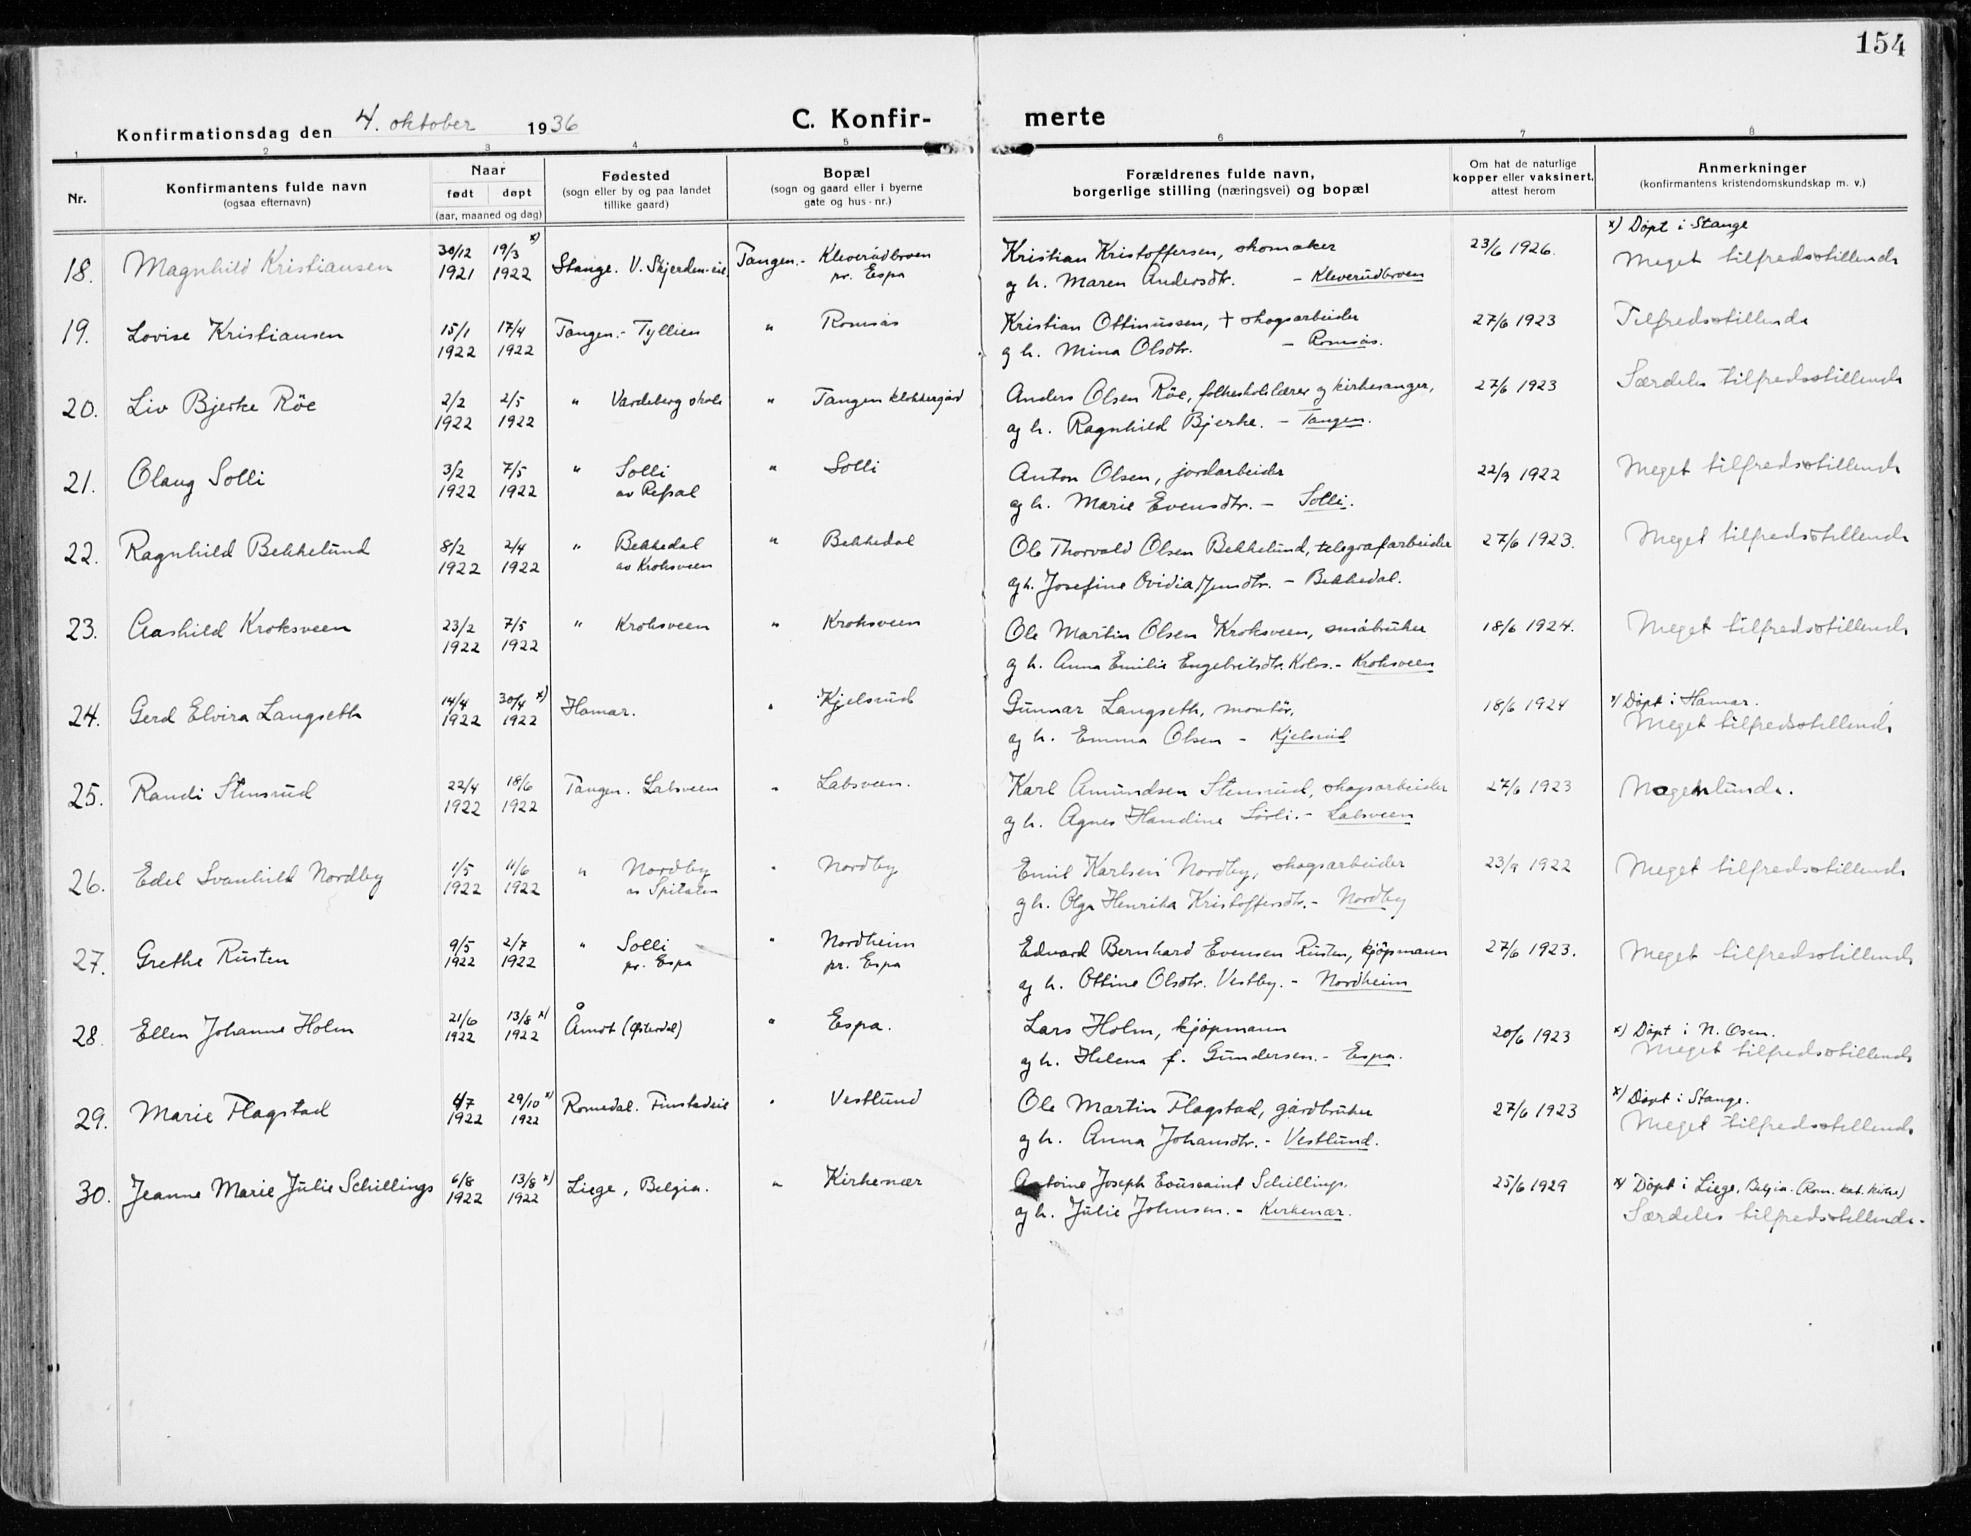 154
Konfirmationsdag den 4. oktober 1936
C. Konfir- merte
1 2 3 4 5 6 7 8
Nr.
Konfirmantens fulde navn
(ogsaa efternavn)
Naar
født døpt
(aar, maaned og dag)
Fødested
(sogn eller by og paa landet
tillike gaard)
Bopæl
(sogn og gaard eller i byerne
gate og hus-nr.)
Forældrenes fulde navn,
borgerlige stilling (næringsvei) og bopæl
Om hat de naturlige
kopper eller vaksinert,
attest herom
Anmerkninger
(konfirmantens kristendomskundskap m. v.)
x) Döpt i Stange
18. Magnhild Kristiansen 30/12 1921 19/3 x) 1922 Stange. V. Skjerden-eie Tangen.- Kleverudbroen pr. Espa Kristian Kristoffersen, skomaker 23/6 1926. Meget tilfredsstillende
og h. Maren Andersdtr. - Kleverudbroen
19. Lovise Kristiansen 15/1 1922 17/4 1922 Tangen.- Tyllien " Romsås Kristian Ottinussen, + skogsarbeider 27/6 1923 Tilfredsstillende
og h. Mina Olsdtr. - Romsås.
20. Liv Bjerke Röe 2/2 1922 2/5 1922 " Vardeberg skole " Tangen klokkergård Anders Olsen Röe, folkeskolelærer og kirkesanger, 27/6 1923 Særdeles tilfredsstillende
og h. Ragnhild Bjerke. - Tangen.
21. Olaug Solli 3/2 1922 7/5 1922 " Solli av Refsal " Solli Anton Olsen, jordarbeider 22/9 1922 Meget tilfredsstillende
og h. Marie Evensdtr. - Solli.
22. Ragnhild Bekkelund 8/2 1922 2/4 1922 " Bekkedal av Kroksveen " Bekkedal Ole Thorvald Olsen Bekkelund, telegrafarbeider 27/6 1923. Meget tilfredsstillende
og h. Josefine Ovidia Jensdtr. - Bekkedal.
23. Aashild Kroksveen 23/2 1922 7/5 1922 " Kroksveen " Kroksveen Ole Martin Olsen Kroksveen, småbruker 18/6 1924. Meget tilfredsstillende
og h. Anna Emilie Engebretsdtr. Kolos.- Kroksveen
24. Gerd Elvira Langseth 14/4 1922 30/4 x) 1922 Hamar. " Kjelsrud Gunnar Langseth, montör, 18/6 1924 x) Döpt i Hamar. Meget tilfredsstillende
og h. Emma Olsen - Kjelsrud
25. Randi Stensrud 22/4 1922 18/6 1922 Tangen. Labsveen " Labsveen. Karl Amundsen Stensrud, skogsarbeider 27/6 1923 Nogenlunde.
og h. Agnes Handine Sörli.- Labsveen
26. Edel Svanhild Nordby 1/5 1922 11/6 1922 " Nordby av Spitalen " Nordby Emil Karlsen Nordby, skogsarbeider 23/9 1922 Meget tilfredsstillende
og h. Olga Henrika Kristoffersdtr.- Nordby
27. Grethe Rusten 9/5 1922 2/7 1922 " Solli pr. Espa " Nordheim pr. Espa Edvard Bernhard Evensen Rusten, kjöpmann 27/6 1923. Meget tilfredsstillende
og h. Ottine Olsdtr. Vestby. - Nordheim
28. Ellen Johanne Holm 21/6 1922 13/8 x) 1922 Åmot (Österdal) " Espa. Lars Holm, kjöpmann 20/6 1923 x) Döpt i N. Osen. Meget tilfredsstillende
og h. Helena f. Gundersen.- Espa.
29. Marie Flagstad 4/7 1922 29/10 x) 1922 Romedal. Finstadeie " Vestlund Ole Martin Flagstad, gårdbruker 27/6 1923 x) Döpt i Stange. Meget tilfredsstillende
og h. Anna Johansdtr.- Vestlund.
30. Jeanne Marie Julie Schillings 6/8 1922 13/8 x) 1922 Liege, Belgia. " Kirkenær Antoine Joseph Schillings. 25/6 1929 x) Döpt i Liege, Belgia. (Rom. kat. kirke) Særdeles tilfredsstillende.
og h. Julie Johnsen. - Kirkenær.